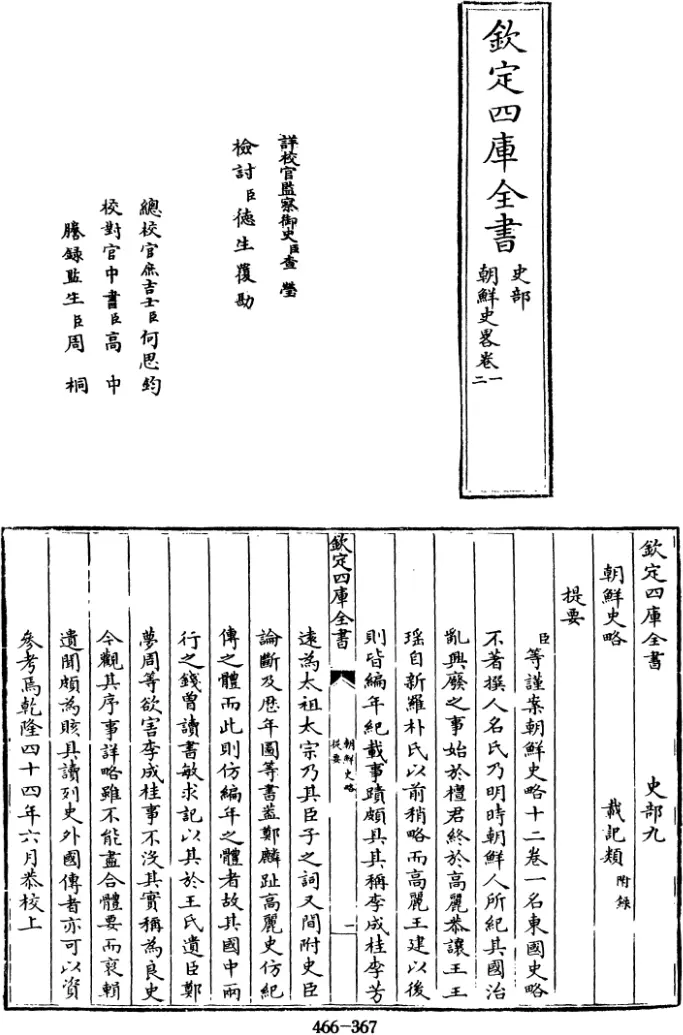 欽定四庫全書
史部
朝鮮史畧卷一
二
詳校官監察御史臣查瑩
檢討臣德生覆勘
總校官庶吉士臣何思鈞
校對官中書臣高中
謄錄監生臣周桐
欽定四庫全書
史部九
朝鮮史略
載記類附錄
提要
臣等謹案朝鮮史略十二卷一名東國史略
不著撰人名氏乃明時朝鮮人所紀其國治
亂興廢之事始於檀君終於高麗恭讓王王
瑤自新羅朴氏以前稍略而高麗王建以後
則皆編年紀載事蹟頗具其稱李成桂李芳
欽定四庫全書
朝鮮史略
提要
一
遠為太祖太宗乃其臣子之詞又間附史臣
論斷及歴年圖等書蓋鄭麟趾高麗史仿紀
傳之體而此則仿編年之體者故其國中兩
行之錢曾讀書敏求記以其於王氏遺臣鄭
夢周等欲害李成桂事不沒其實稱為良史
今觀其序事詳略雖不能盡合體要而裒輯
遺聞頗為賅具讀列史外國傳者亦可以資
參考焉乾隆四十四年六月恭校上
466-367